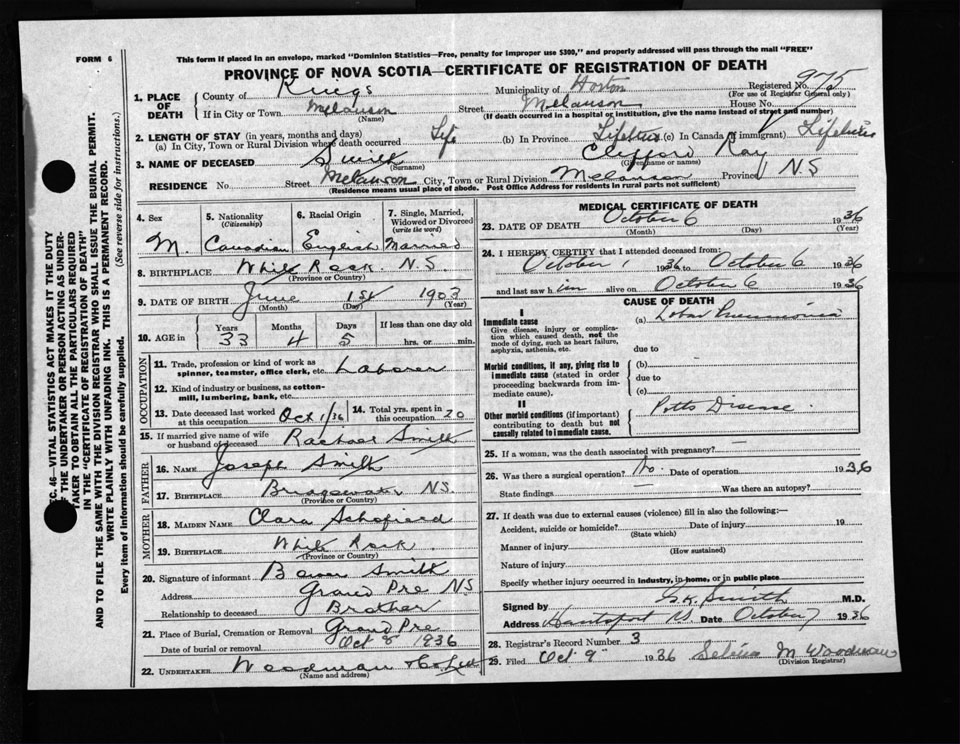 This form if placed in an envelope, marked "Dominion Statistics—Free, penalty for improper use $300," and properly addressed will pass through the mail "FREE"
FORM 6
PROVINCE OF NOVA SCOTIA—CERTIFICATE OF REGISTRATION OF DEATH
1. PLACE OF DEATH County of Kings Municipality of Horton Registered No. 975
(For use of Registrar General only)
If in City or Town Melanson Street Melanson House No.
(Name) (If death occurred in a hospital or institution, give the name instead of street and number)
2. LENGTH OF STAY (in years, months and days)
(a) In City, Town or Rural Division where death occurred Life (b) In Province Lifetime (c) In Canada (if immigrant) Lifetime
3. NAME OF DECEASED Smith Clifford Ray
(Surname) (Given name or names)
RESIDENCE No. Street Melanson City, Town or Rural Division Melanson Province N.S
(Residence means usual place of abode. Post Office Address for residents in rural parts not sufficient)
4. Sex 5. Nationality (Citizenship) 6. Racial Origin 7. Single, Married, Widowed or Divorced (write the word)
M. Canadian English Married
8. BIRTHPLACE White Rock N.S.
(Province or Country)
9. DATE OF BIRTH June 1st 1903
(Month) (Day) (Year)
10. AGE in Years Months Days If less than one day old
33 4 5 hrs. or min.
OCCUPATION
11. Trade, profession or kind of work as spinner, teamster, office clerk, etc. Laborer
12. Kind of industry or business, as cotton-mill, lumbering, bank, etc.
13. Date deceased last worked at this occupation Oct 1/36 14. Total yrs. spent in this occupation 20
15. If married give name of wife or husband of deceased Rachael Smith
FATHER
16. NAME Joseph Smith
17. BIRTHPLACE Bridgewater N.S.
(Province or Country)
MOTHER
18. MAIDEN NAME Clara Schofield
19. BIRTHPLACE White Rock
(Province or Country)
20. Signature of informant Smith
Address Grand Pre N.S
Relationship to deceased Brother
21. Place of Burial, Cremation or Removal Grand Pre
Date of burial or removal Oct 8 1936
22. UNDERTAKER Woodman & Co Ltd
(Name and address)
MEDICAL CERTIFICATE OF DEATH
23. DATE OF DEATH October 6 1936
(Month) (Day) (Year)
24. I HEREBY CERTIFY that I attended deceased from:
October 1 1936 to October 6 1936
and last saw him alive on October 6 1936
CAUSE OF DEATH
I
Immediate cause (a) Lobar Pneumonia
Give disease, injury or complication which caused death, not the mode of dying, such as heart failure, asphyxia, asthenia, etc.
due to
Morbid conditions, if any, giving rise to immediate cause (stated in order proceeding backwards from immediate cause).
(b)
due to
(c)
II
Other morbid conditions (if important) contributing to death but not causally related to immediate cause. Potts Disease
25. If a woman, was the death associated with pregnancy?
26. Was there a surgical operation? No. Date of operation 1936
State findings Was there an autopsy?
27. If death was due to external causes (violence) fill in also the following:—
Accident, suicide or homicide? Date of injury 19
(State which)
Manner of injury
(How sustained)
Nature of injury
Specify whether injury occurred in industry, in home, or in public place
Signed by G.K. Smith M.D.
Address Hantsport N.S. Date October 7 1936
28. Registrar's Record Number 3
29. Filed Oct 9" 1936 Selina M Woodman
(Division Registrar)
SEC. 46—VITAL STATISTICS ACT MAKES IT THE DUTY
OF THE UNDERTAKER OR PERSON ACTING AS UNDERTAKER TO OBTAIN ALL THE PARTICULARS REQUIRED
IN THE "CERTIFICATE OF REGISTRATION OF DEATH"
AND TO FILE THE SAME WITH THE DIVISION REGISTRAR WHO SHALL ISSUE THE BURIAL PERMIT.
WRITE PLAINLY WITH UNFADING INK. THIS IS A PERMANENT RECORD.
Every item of information should be carefully supplied. (See reverse side for instructions.)